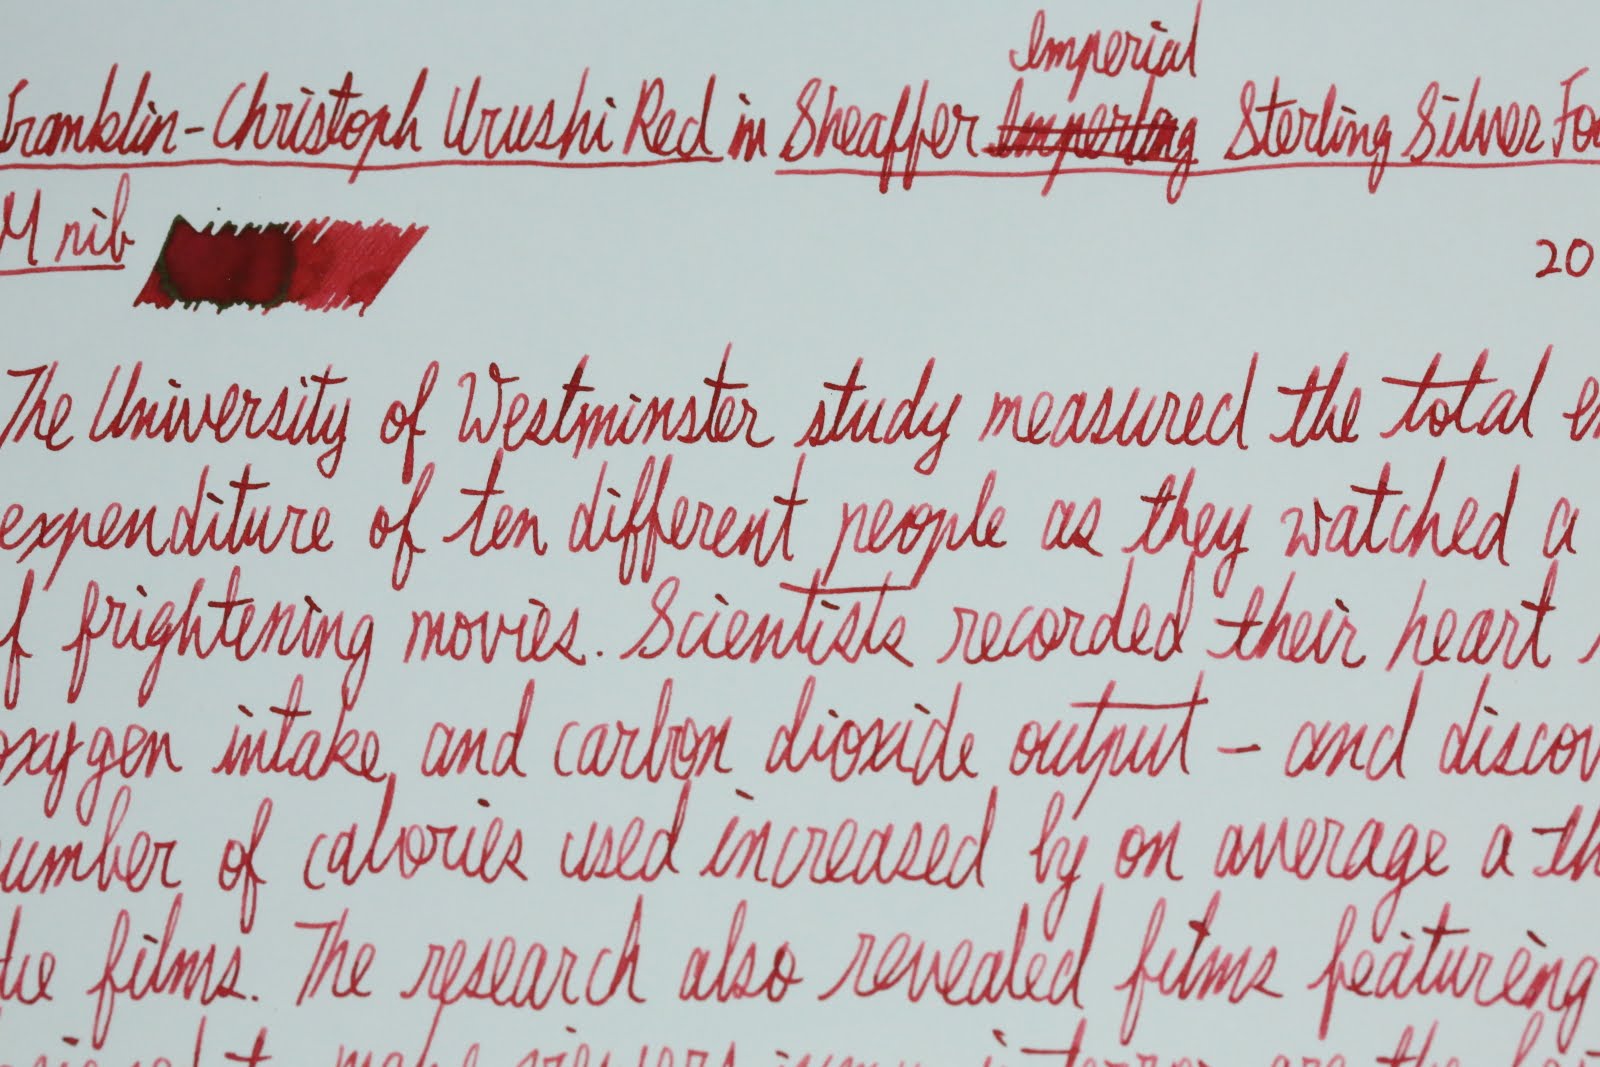 Imperial
Franklin-Christoph Urushi Red in Sheaffer Sterling Silver
M nib
20
The University of Westminster study measured the total
expenditure of ten different people as they watched a
of frightening movies. Scientists recorded their heart
oxygen intake, and carbon dioxide output – and
number of calories used increased by on average a
the films. The research also revealed films featuring
make viewers jump in terror are the